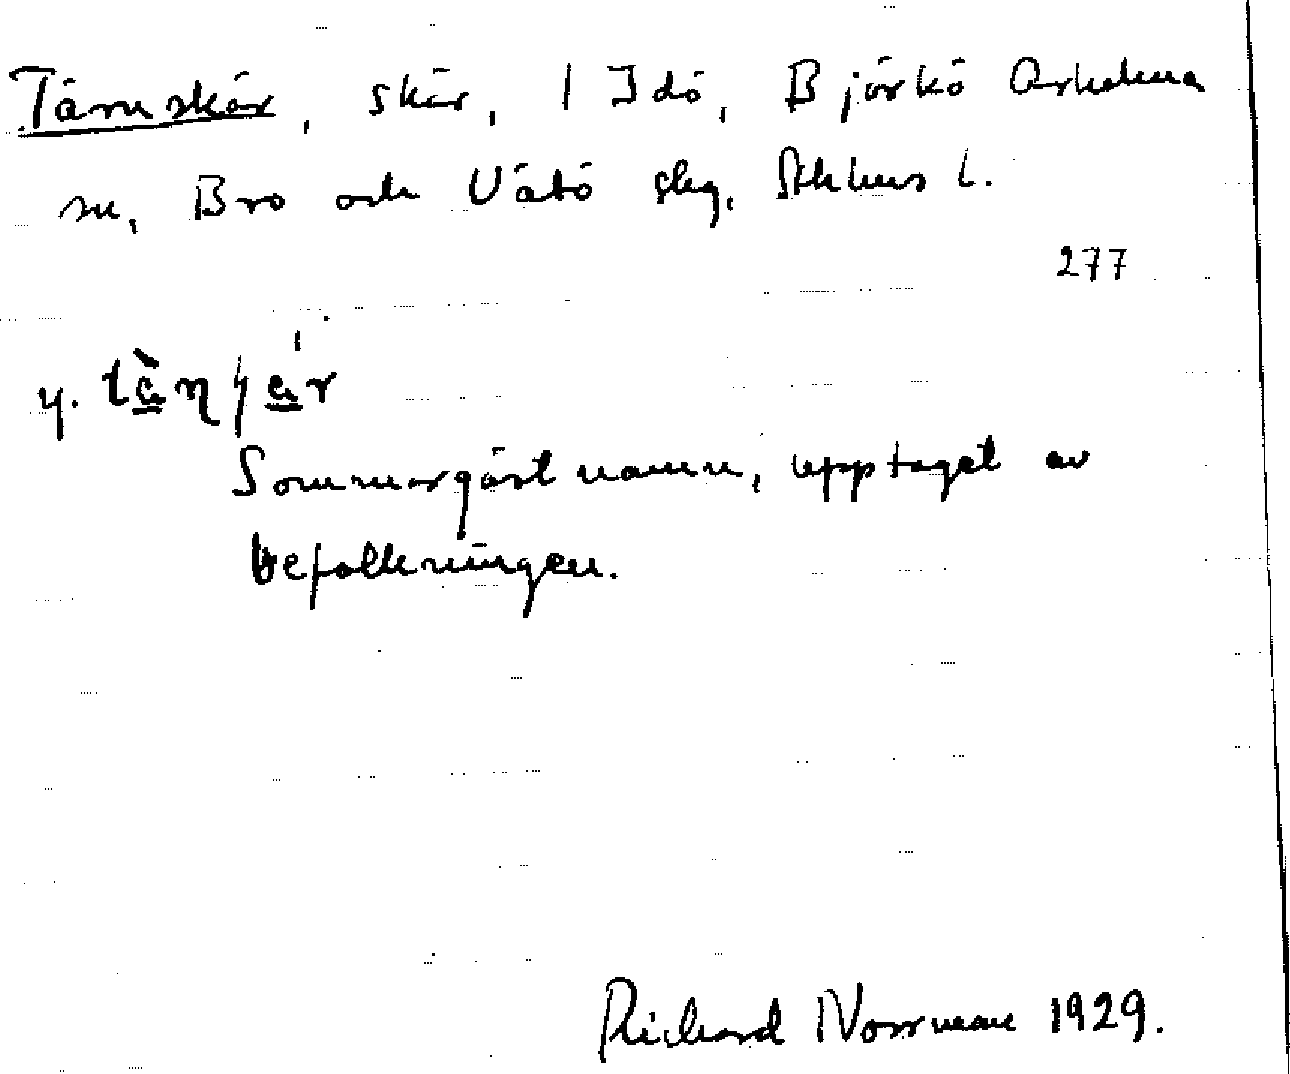 Tärnskär, skär, 1 Idö, Björkö Arholma
sn, Bro och Vätö skg. Sthlms l.
277
y.
Sommargästnamn, upptaget av
befolkningen.
Richard Norrman 1929.